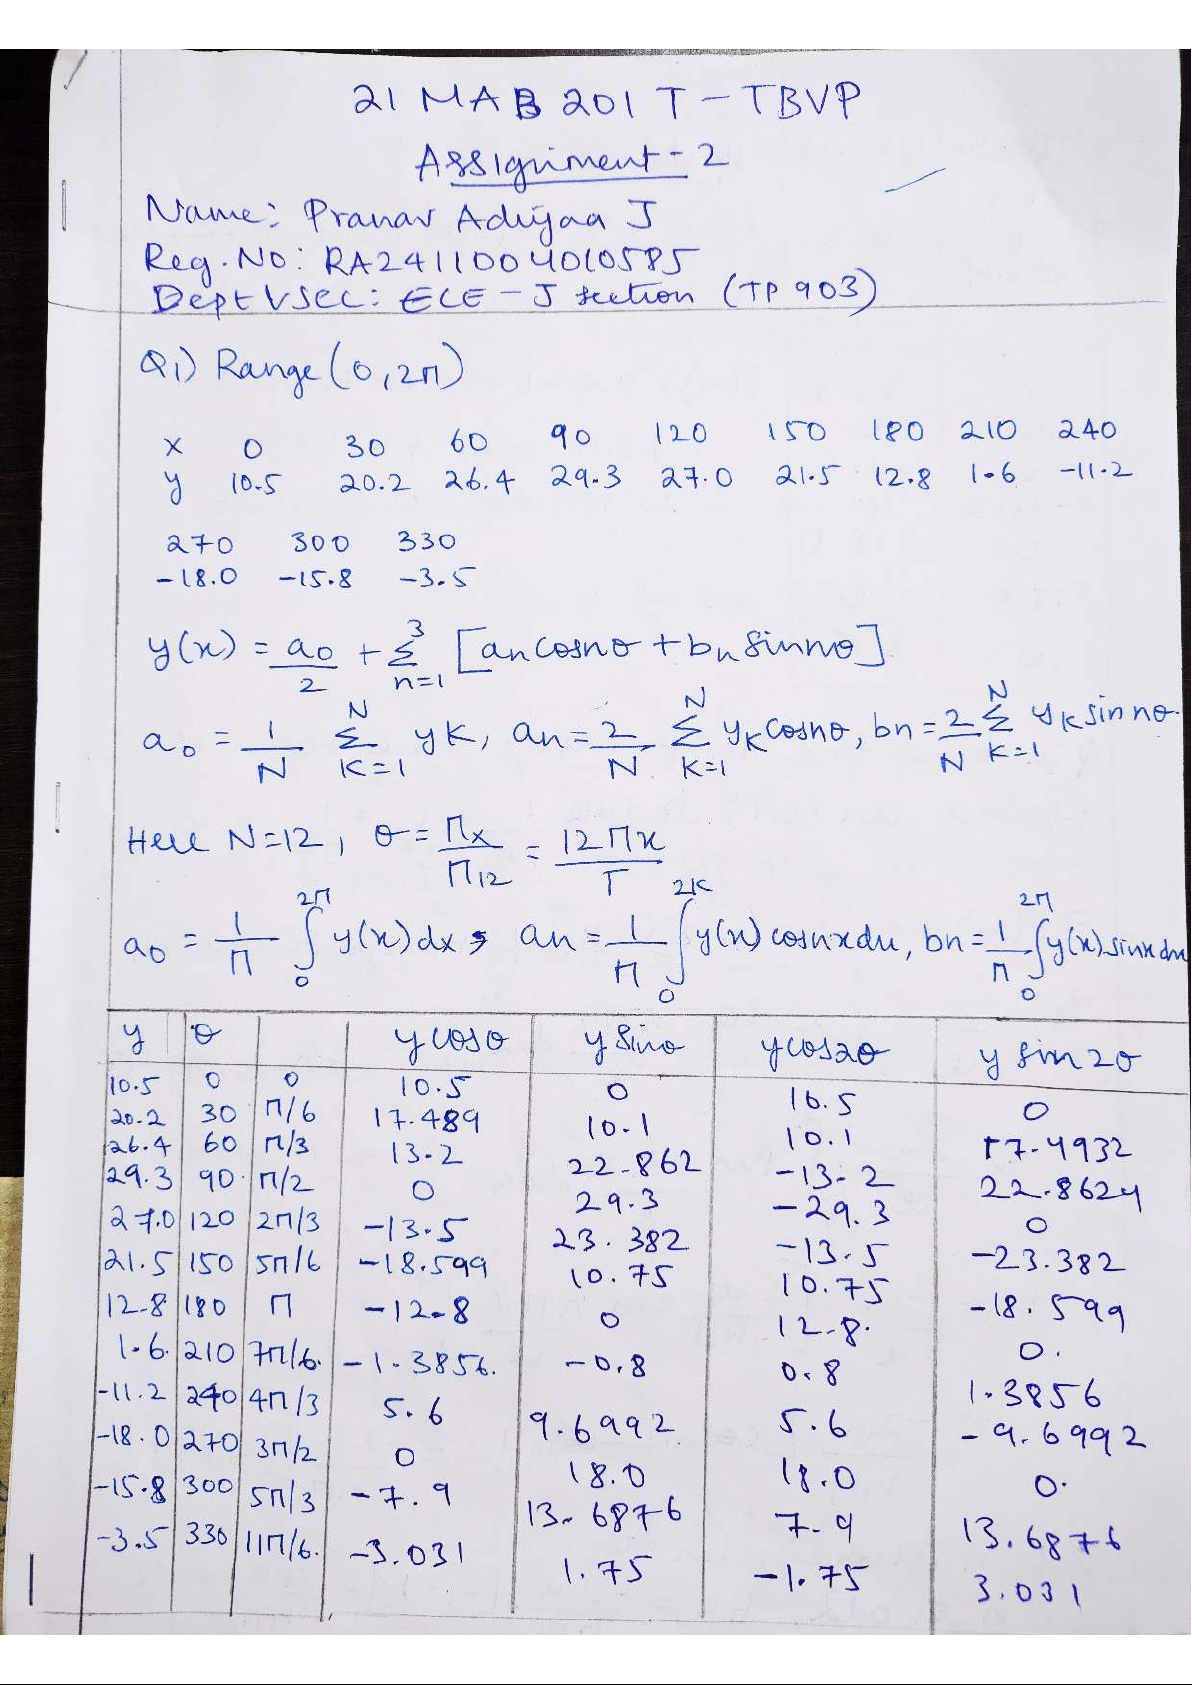 21 MAB 201 T - TBVP
Assignment - 2
Name: Pranav Adiyaa J
Reg. No: RA2411004010585
Dept \/ SEC: ECE - J section (TP 903)
Q1) Range (0, 2π)
x 0 30 60 90 120 150 180 210 240
y 10.5 20.2 26.4 29.3 27.0 21.5 12.8 1.6 -11.2
270 300 330
-18.0 -15.8 -3.5
y(x) = a0/2 + Σ_{n=1}^{3} [an cosnθ + bn sinnθ]
a0 = 1/N Σ_{K=1}^{N} yK, an = 2/N Σ_{K=1}^{N} yK cosnθ, bn = 2/N Σ_{K=1}^{N} yK sin nθ.
Here N=12, θ = πx/π12 = 12πx/T
a0 = 1/π ∫_0^{2π} y(x) dx, an = 1/π ∫_0^{2π} y(x) cosnx dx, bn = 1/π ∫_0^{2π} y(x) sinx dx
y θ y cosθ y sinθ y cos2θ y sin 2θ
10.5 0 0 10.5 0 10.5 0
20.2 30 π/6 17.489 10.1 10.1 17.4932
26.4 60 π/3 13.2 22.862 -13.2 22.8624
29.3 90 π/2 0 29.3 -29.3 0
27.0 120 2π/3 -13.5 23.382 -13.5 -23.382
21.5 150 5π/6 -18.599 10.75 10.75 -18.599
12.8 180 π -12.8 0 12.8. 0.
1.6 210 7π/6. -1.3856. -0.8 0.8 1.3856
-11.2 240 4π/3 5.6 9.6992 5.6 -9.6992
-18.0 270 3π/2 0 18.0 18.0 0.
-15.8 300 5π/3 -7.9 13.6876 7.9 13.6876
-3.5 330 11π/6. -3.031 1.75 -1.75 3.031